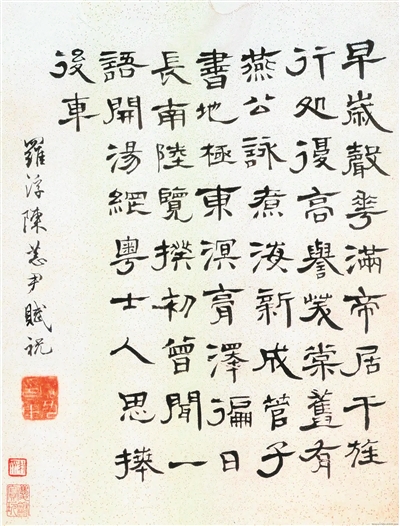 早歲聲華滿帝居干旌
行処復高譽茇棠舊有
燕公詠煮海新成管子
書地極東溟膏澤徧日
長南陸覽揆初曾聞一
語開湯網粵士人思捧
後車
羅浮陳恭尹賦祝